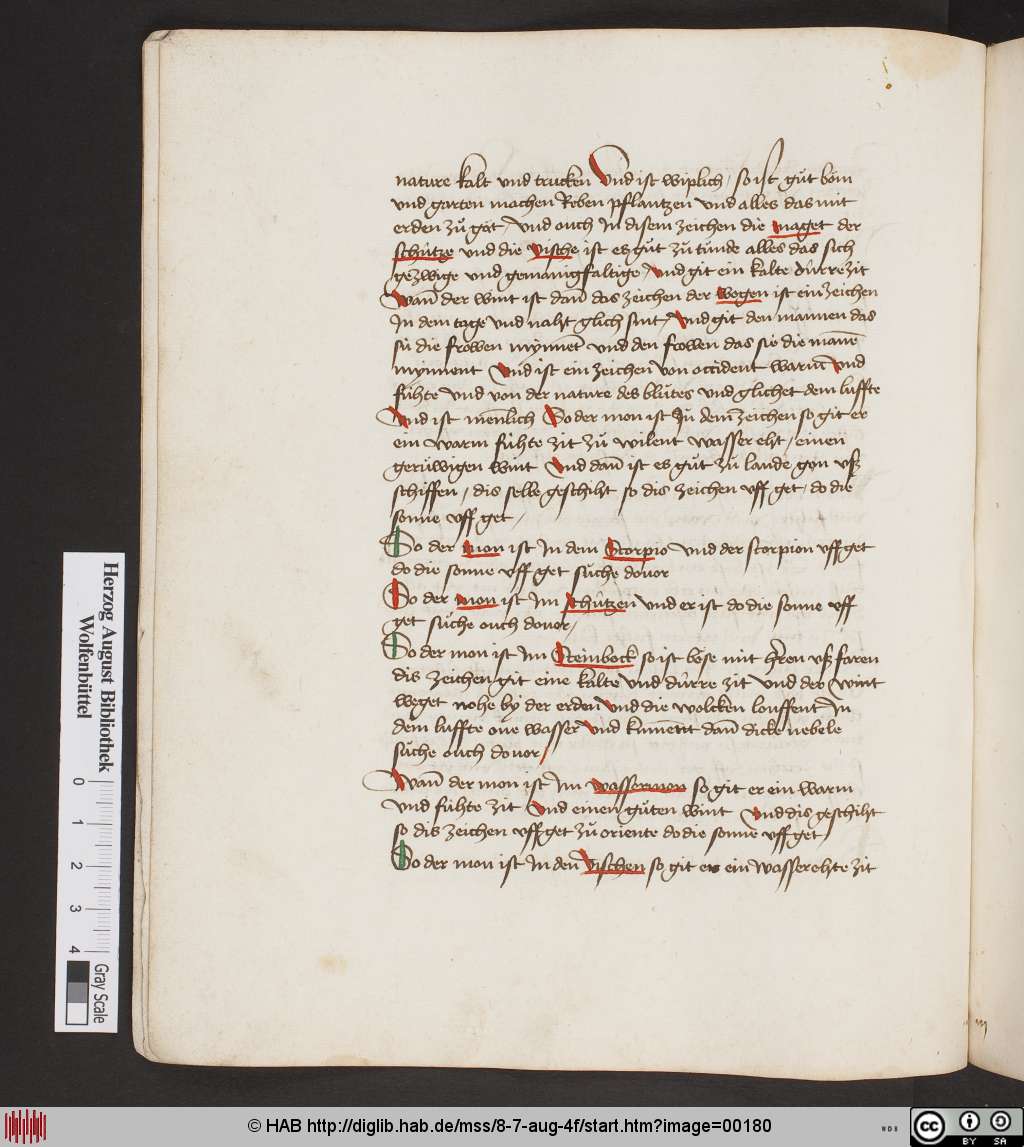 nature kalt vnd trucken Vnd ist wiplich / so ist gůt böm
vnd garten machen Reben pflantzen vnd alles das mit
erden zů gat / vnd ouch In disem zeichen die maget der
schútze vnd die vische ist es gůt zů tůnde alles das sich
gezwige vnd gemanigfaltige / vnd git ein kalte dúrre zit
Wan̄ der wint ist dan̄ das zeichen der wogen ist ein zeichen
In dem tage vnd naht glich sint / vnd git den mannen das
sú die frowen mynnet vnd den frowen das sie die man̄e
mynnent Vnd ist ein zeichen von occident warm vnd
fúhte vnd von der nature des blůtes vnd glichet dem luffte
Vnd ist men̄lich So der mon ist Jn dem zeichen so git er
ein warm fúhte zit zů wilent wasser eht / einen
gerůwigen wint Vnd dan̄ ist es gůt zů lande gon vß
schiffen / dis selbe geschiht so dis zeichen vff get / do die
sonne vff get /
So der mon ist In dem Scorpio vnd der scorpion vff get
do die sonne vff get sůche douor
So der mon ist Im schútzen vnd er ist do die sonne vff
get sůche ouch douor /
So der mon ist Im Steinbock so ist böse mit h'ren vß faren
dis zeichen git eine kalte vnd dúrre zit vnd der wint
weget nohe by der erden vnd die wolcken louffent In
dem luffte one wasser vnd kum̄ent dan̄ dicke nebele
sůche ouch douor /
Wan̄ der mon ist Im wassermon so git er ein warm
vnd fúhte zit vnd einen gůten wint vnd dis geschiht
so dis zeichen vff get zů oriente do die sonne vff get
So der mon ist In den vischen so git er ein wasserehte zit
Herzog August Bibliothek
Wolfenbüttel
0 1 2 3 4
Gray Scale
© HAB http://diglib.hab.de/mss/8-7-aug-4f/start.htm?image=00180
WDB
cc BY SA